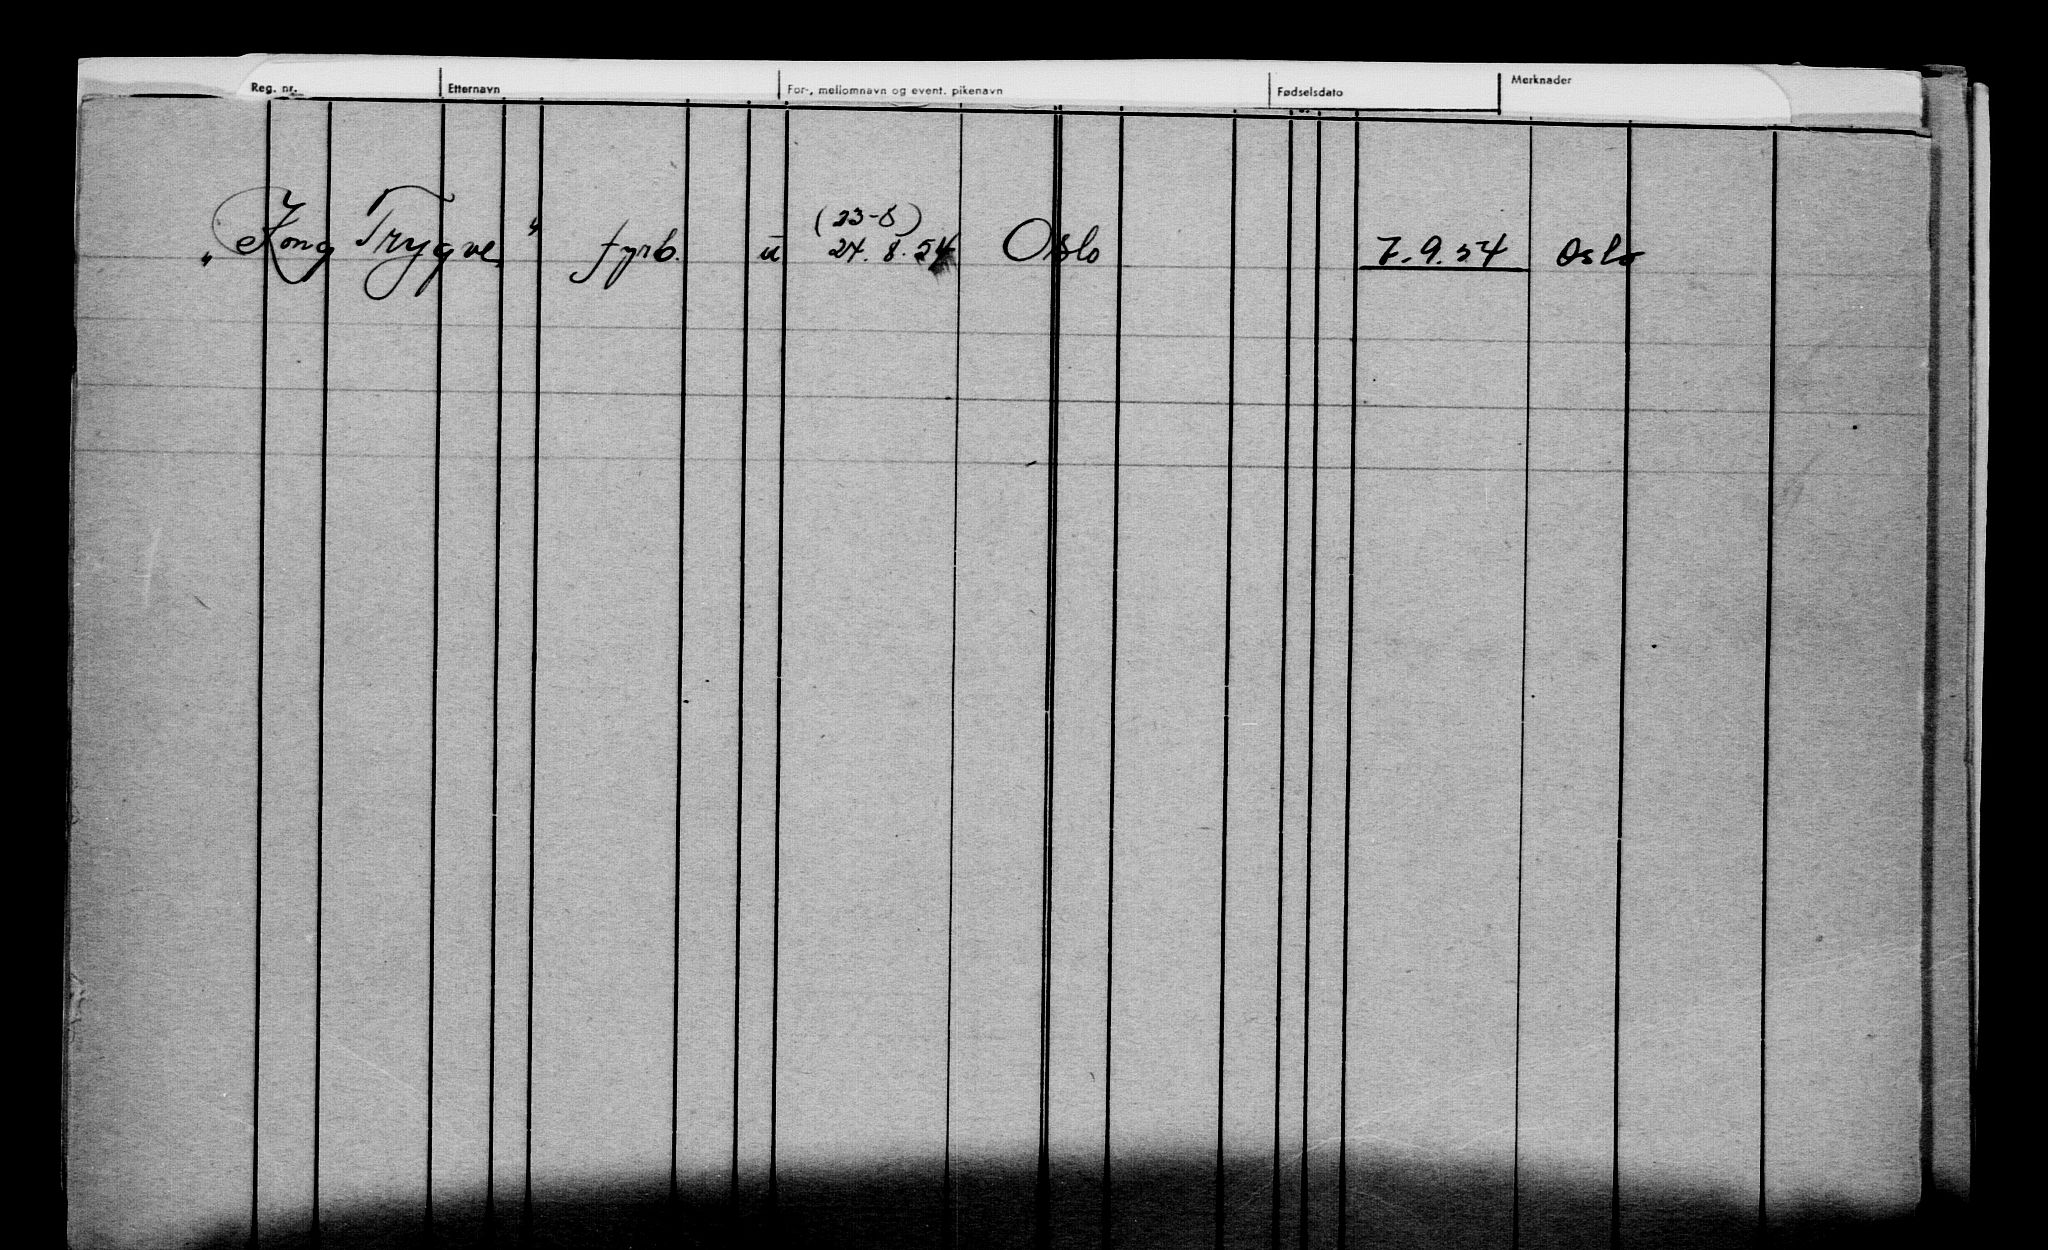 Reg. nr. Etternavn For-, mellomnavn og event. pikenavn Fødselsdato Merknader
(23-8)
"Kong Trygve" fyrb. u 24.8.54 Oslo 7.9.54 Oslo